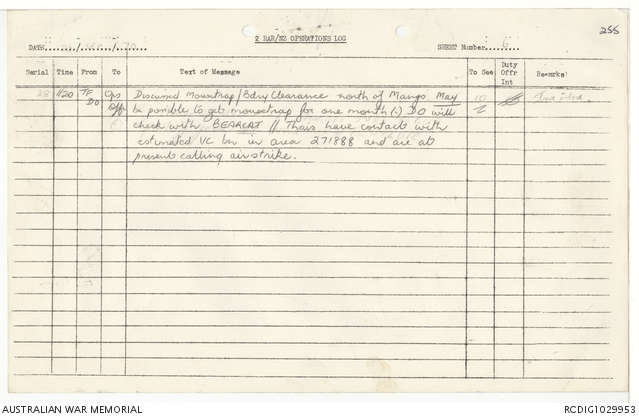 255
2 RAR/NZ OPERATIONS LOG
DATE
SHEET Number
Serial Time From To Text of Message To See Duty Offr Int Remarks
1120 TF DO Ops Off Discussed Mousetrap/Bdry Clearance north of Mango May
be possible to get mousetrap for one month (.) DO will
check with BEARCAT // Thais have contact with
estimated VC bn in area 271888 and are at
present calling airstrike.
AUSTRALIAN WAR MEMORIAL
RCDIG1029953